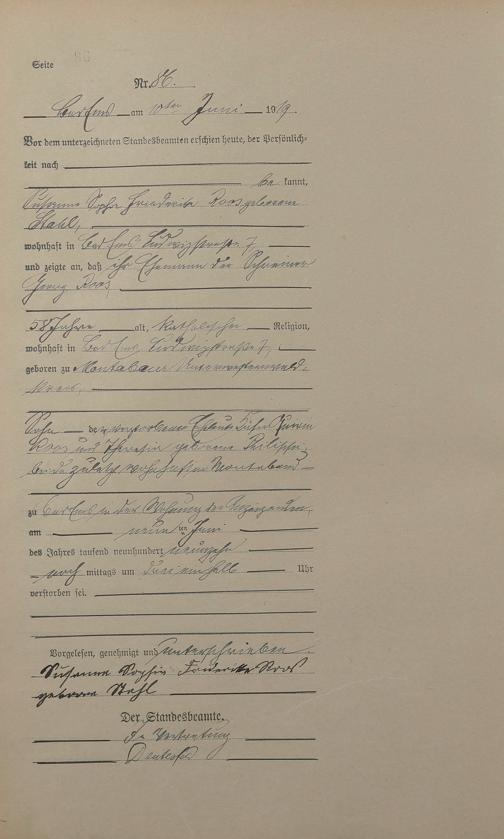 Seite
Nr. 86.
Bad Ems am 10ten Juni 1919.
Vor dem unterzeichneten Standesbeamten erschien heute, der Persönlich-
keit nach
be kannt,
Susanna Sophie Friederike Roos geborene
Stahl,
wohnhaft in Bad Ems Ludwigstraße 7,
und zeigte an, daß ihr Ehemann der Schreiner
Georg Roos
58 Jahre alt, katholischer Religion,
wohnhaft in Bad Ems Ludwigstraße 7,
geboren zu Montabaur Unterwesterwald-
kreis,
Sohn de verstorbenen Eheleute
Roos und geborene Philippi,
beide zuletzt wohnhaft in Montabaur
zu Bad Ems in der Wohnung der Anzeigenden,
am neunten Juni
des Jahres tausend neunhundert neunzehn
nach mittags um drei einhalb Uhr
verstorben sei.
Vorgelesen, genehmigt und unterschrieben.
Susanne Sophie Friederike Roos
geborene Stahl
Der Standesbeamte.
In Vertretung